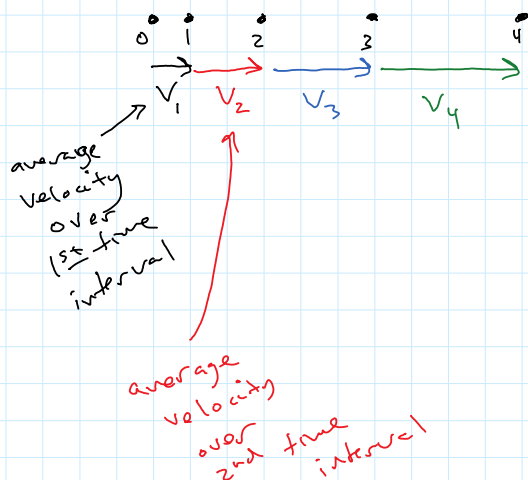 0 1 2 3 4
V1 V2 V3 V4
average
velocity
over
1st time
interval
average
velocity
over
2nd time
interval